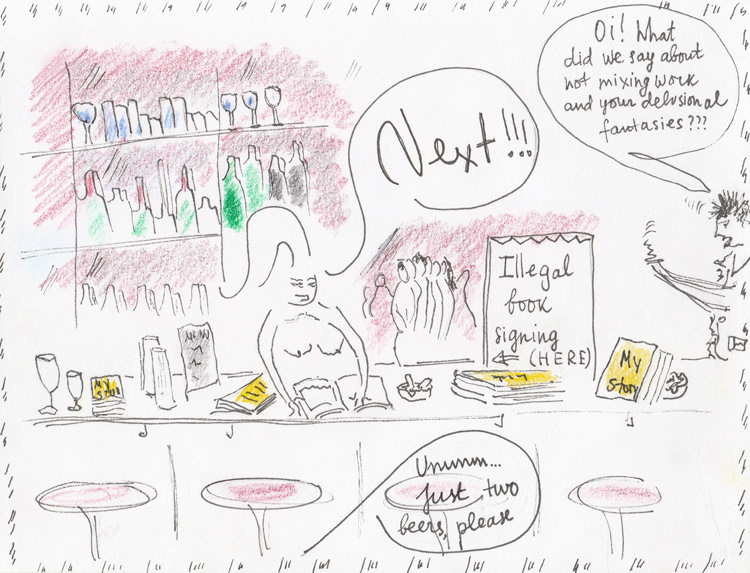 Oi! What
did we say about
not mixing work
and your delusional
fantasies???
Next!!!
Illegal
book
signing
⇐ (HERE)
My
story
My
Ummm...
just two
beers, please